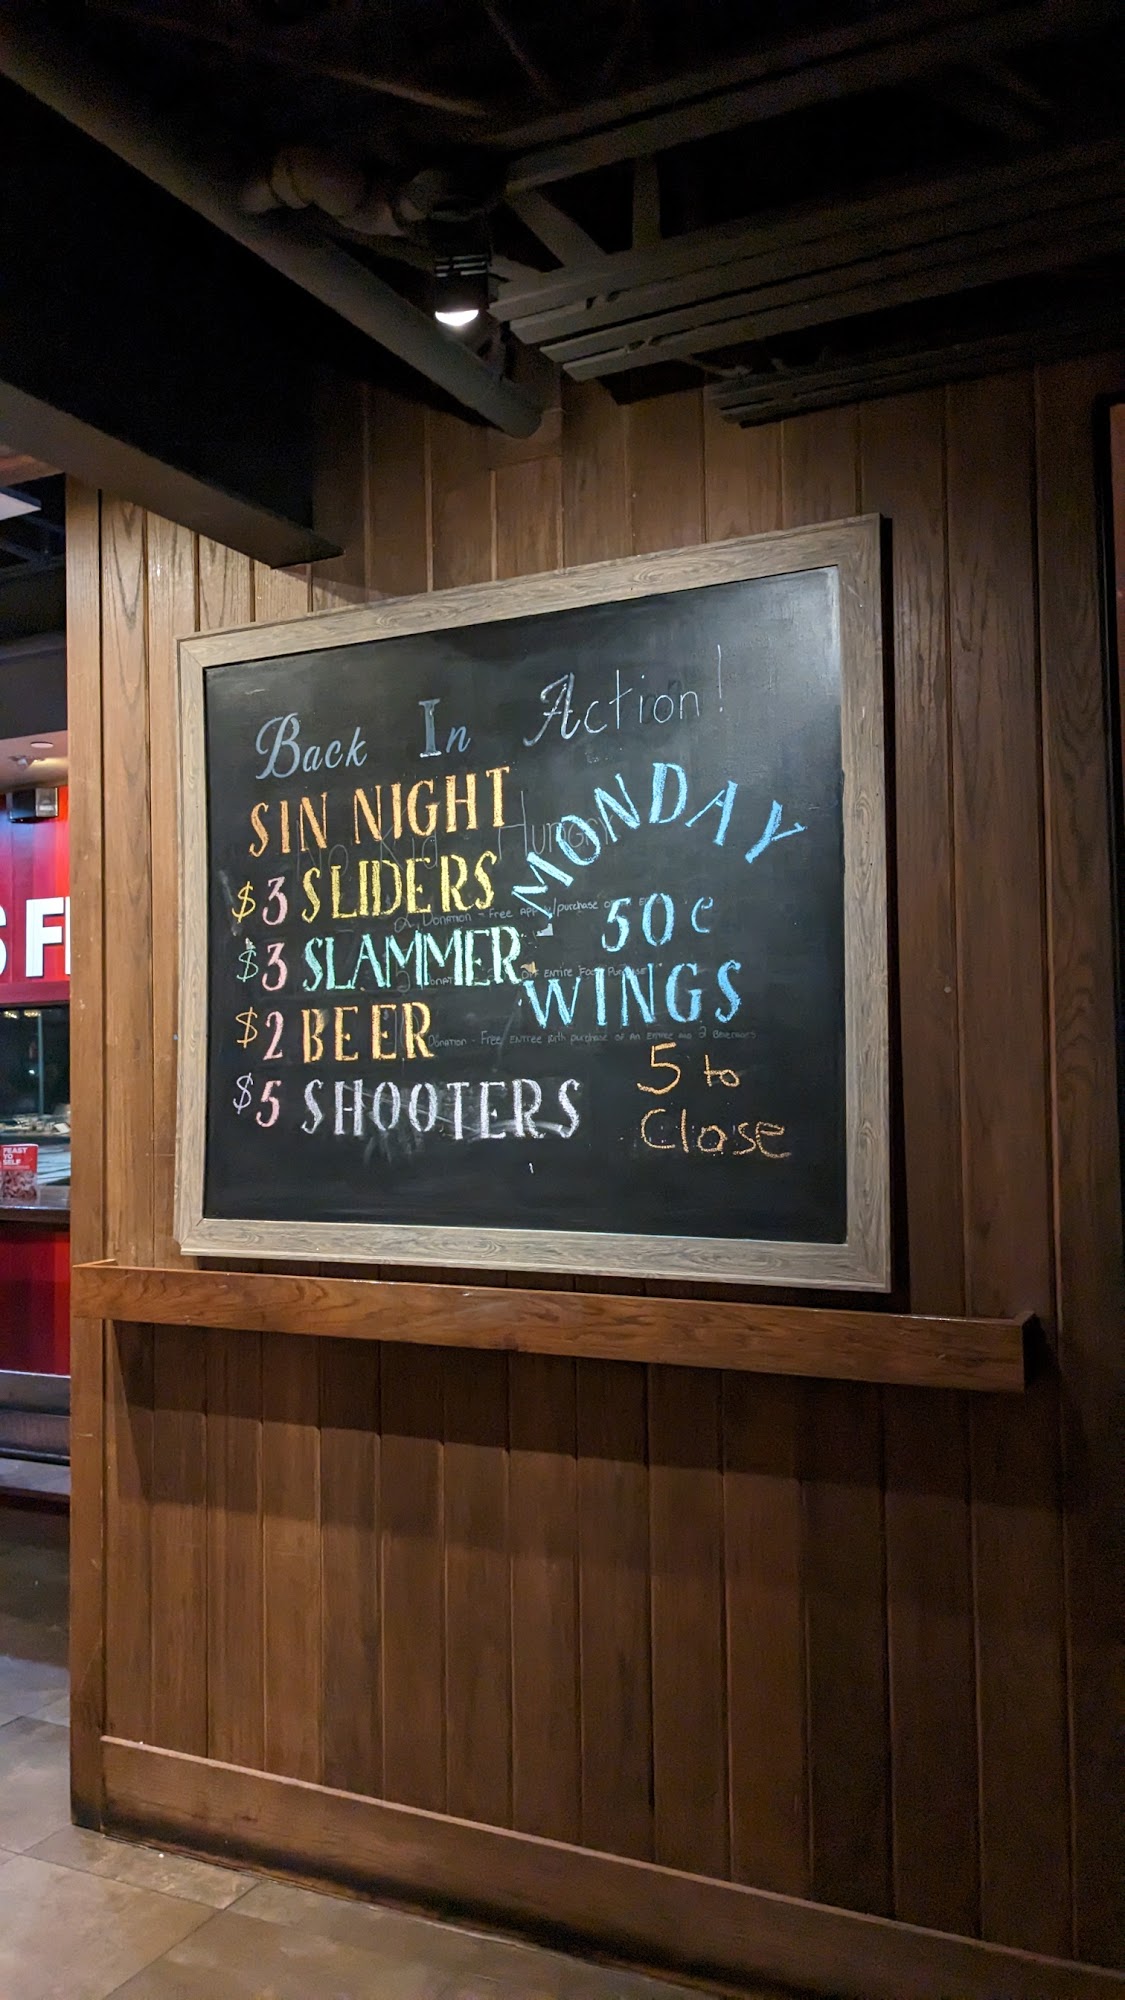 Back In Action!
SIN NIGHT
$3 SLIDERS
$3 SLAMMER
$2 BEER
$5 SHOOTERS
MONDAY
50¢
WINGS
5 to
Close
No Kid Hungry
Donation - Free App w/purchase
Off Entire Food Purchase
Donation - Free Entree with purchase of an Entree and 2 Beverages
S F
FEAST
YO
SELF